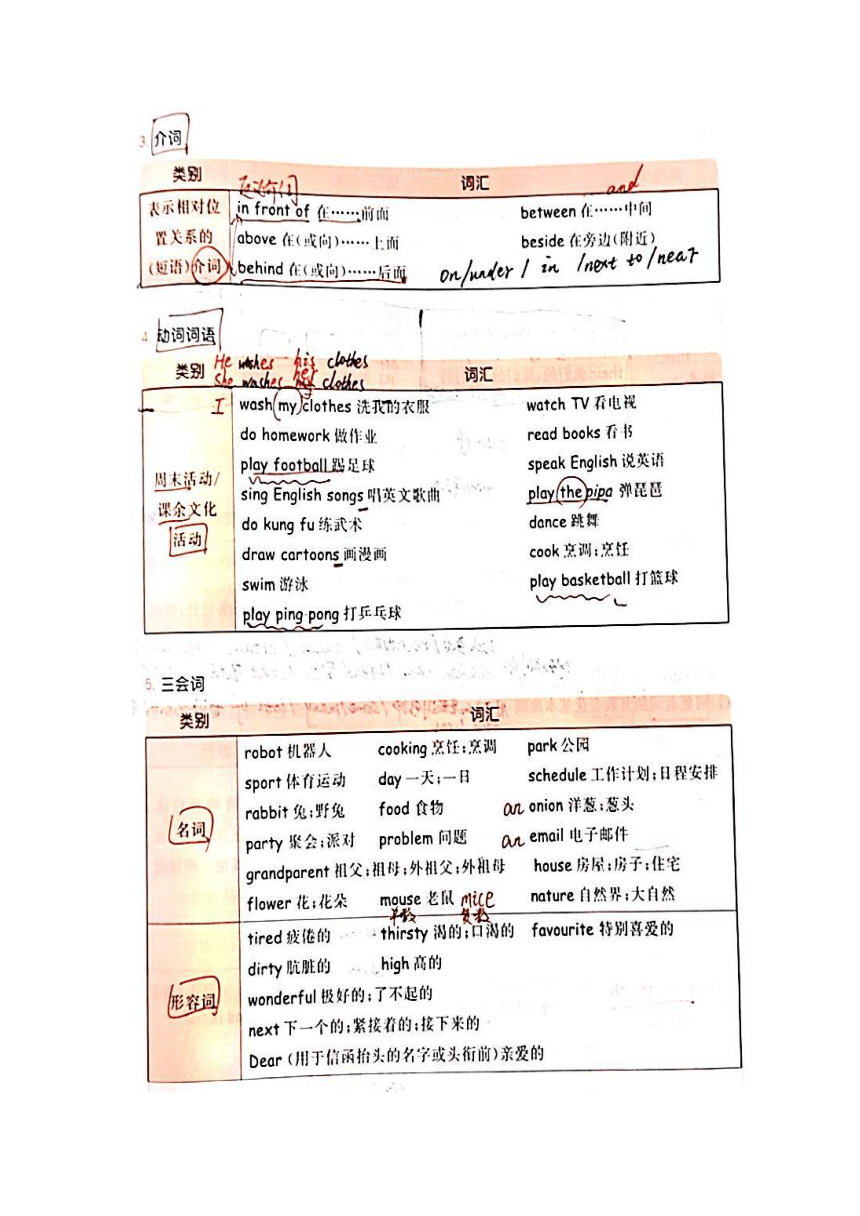 3. 介词
类别 词汇
and
表示相对位 in front of 在……前面 between 在……中间
置关系的 above 在(或向)……上面 beside 在旁边(附近)
(短语)介词 behind 在(或向)……后面 on/under / in /next to /near
4. 动词词语
类别 He washes his clothes 词汇
She washes her clothes
I wash my clothes 洗我的衣服 watch TV 看电视
do homework 做作业 read books 看书
play football 踢足球 speak English 说英语
周末活动/ sing English songs 唱英文歌曲 play the pipa 弹琵琶
课余文化 do kung fu 练武术 dance 跳舞
活动 draw cartoons 画漫画 cook 烹调;烹饪
swim 游泳 play basketball 打篮球
play ping-pong 打乒乓球
5. 三会词
类别 词汇
robot 机器人 cooking 烹饪;烹调 park 公园
sport 体育运动 day 一天;一日 schedule 工作计划;日程安排
rabbit 兔;野兔 food 食物 an onion 洋葱;葱头
名词 party 聚会;派对 problem 问题 an email 电子邮件
grandparent 祖父;祖母;外祖父;外祖母 house 房屋;房子;住宅
flower 花;花朵 mouse 老鼠 mice nature 自然界;大自然
单数 复数
tired 疲倦的 thirsty 渴的;口渴的 favourite 特别喜爱的
dirty 肮脏的 high 高的
形容词 wonderful 极好的;了不起的
next 下一个的;紧接着的;接下来的
Dear (用于信函抬头的名字或头衔前)亲爱的